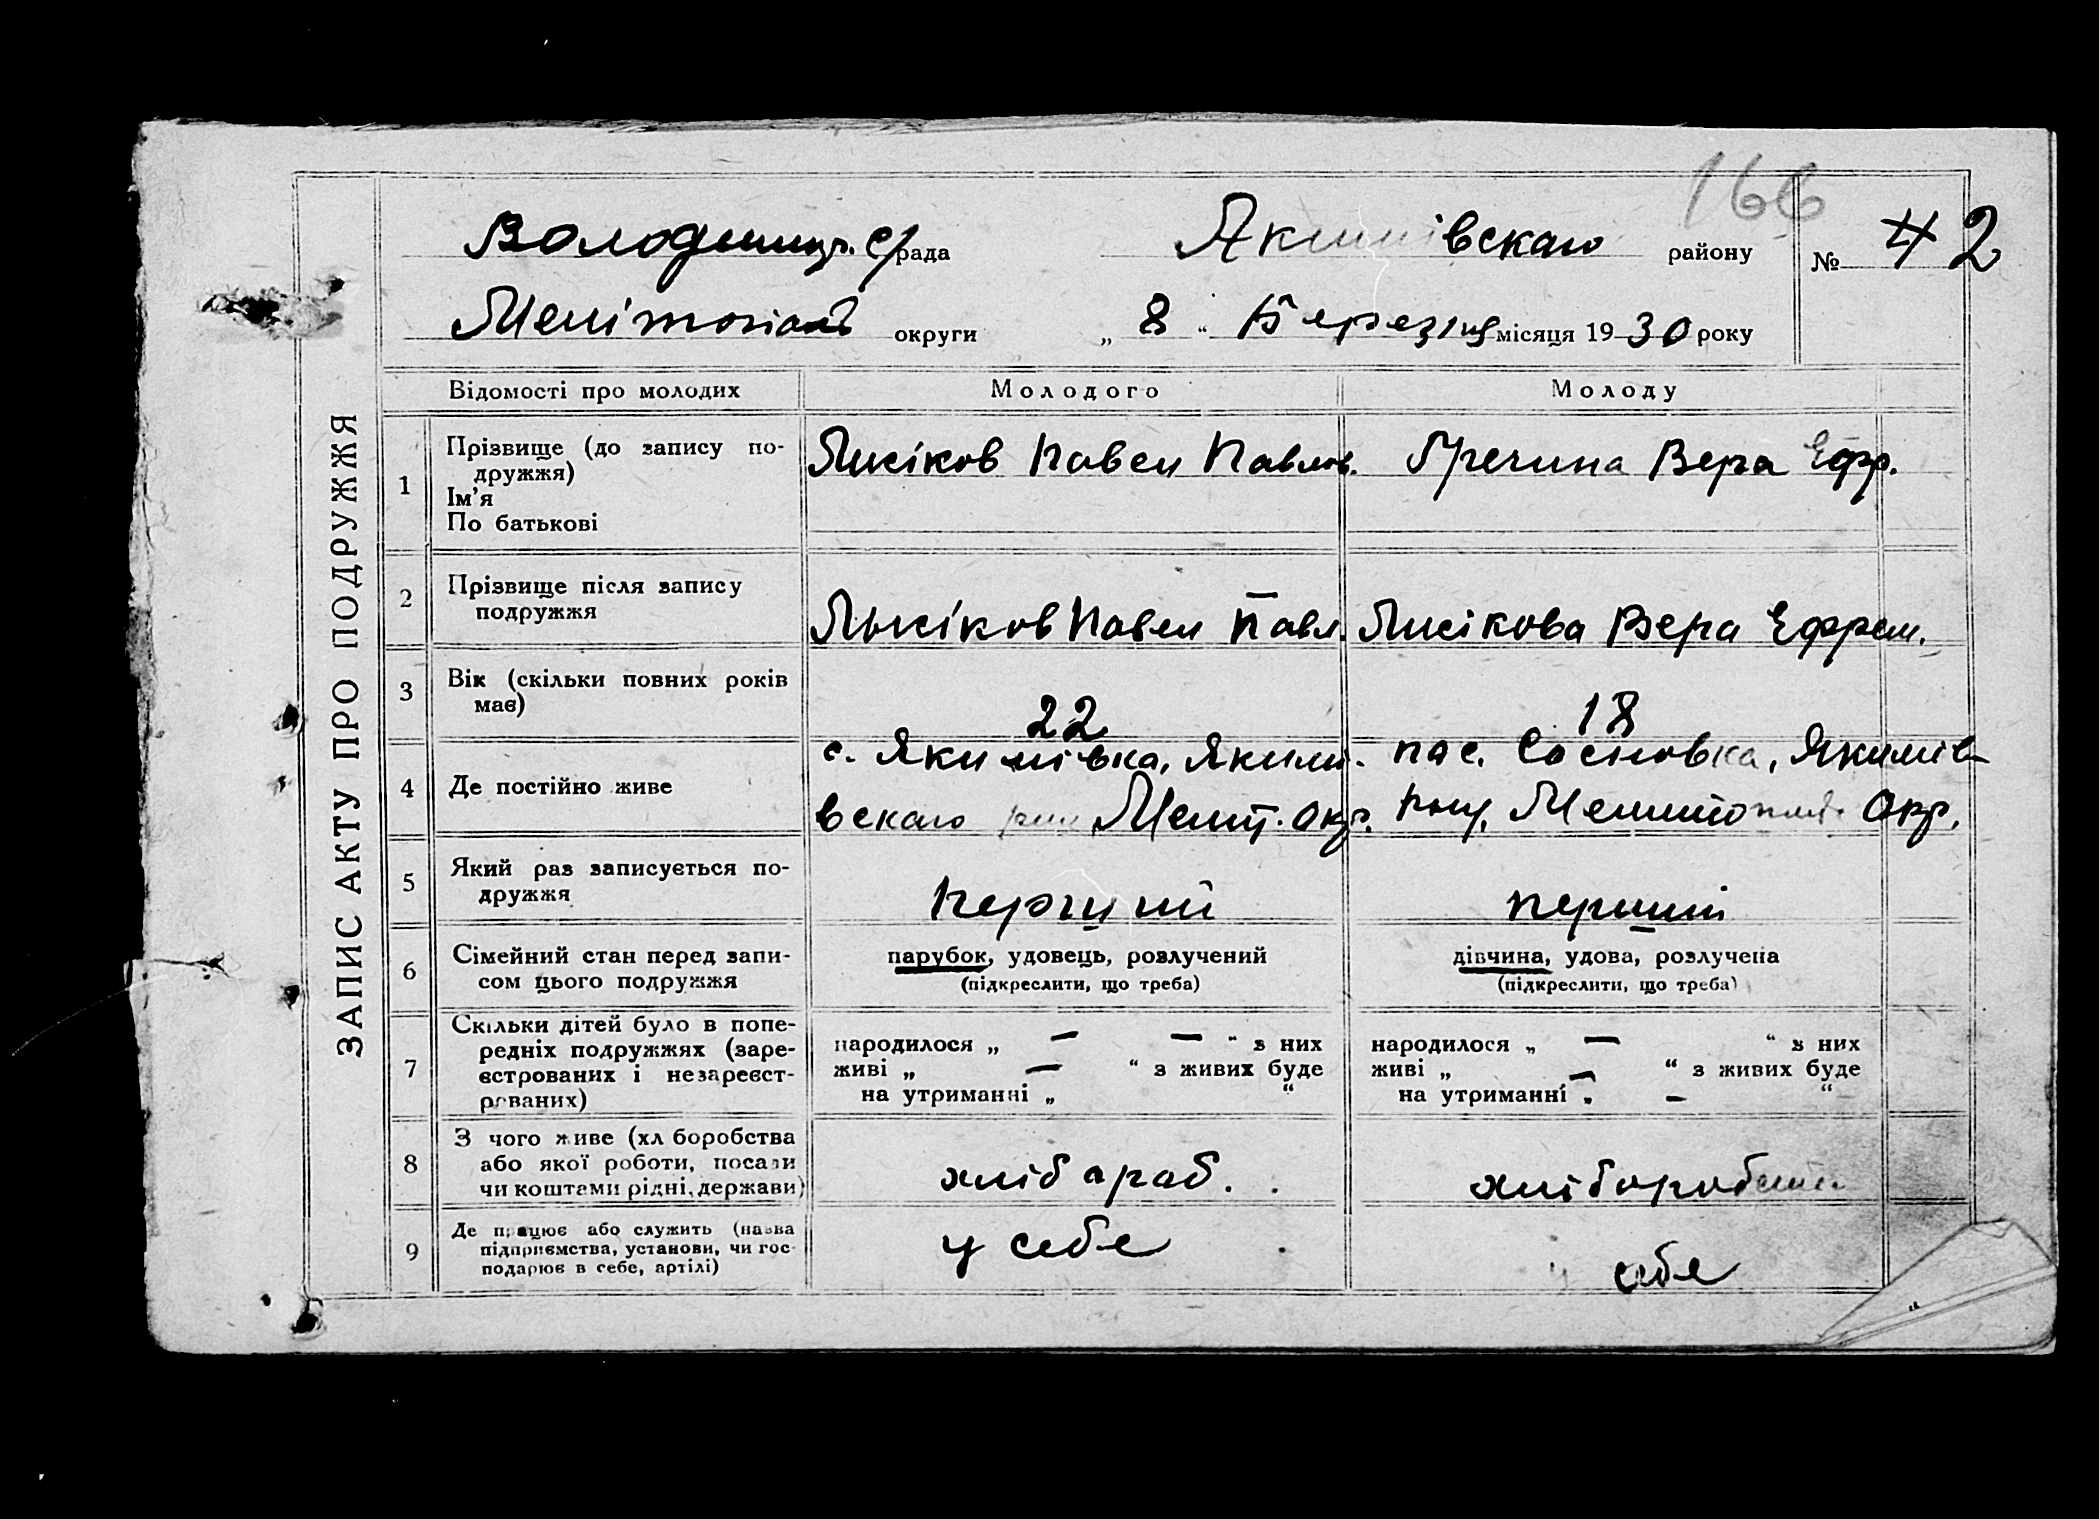 166
Володимир. с/рада Якимівскаго району № 42
Мелітопіль округи „ 8 “ Березня місяця 1930 року
ЗАПИС АКТУ ПРО ПОДРУЖЖЯ
Відомості про молодих Молодого Молоду
1 Прізвище (до запису по-
дружжя)
Ім’я
По батькові
Лисіков Павел Павлов. Гречина Вера Ефр.
2 Прізвище після запису
подружжя
Лисіков Павел Павл. Лисікова Вера Ефрем.
3 Вік (скільки повних років
має)
22 18
4 Де постійно живе
с. Якимівка, Якимі-
вскаго Меліт. окр.
пос. Сосновка, Якимів-
Окр.
5 Який раз записується по-
дружжя
перший перший
6 Сімейний стан перед запи-
сом цього подружжя
парубок, удовець, розлучений
(підкреслити, що треба)
дівчина, удова, розлучена
(підкреслити, що треба)
7 Скільки дітей було в попе-
редніх подружжях (заре-
єстрованих і незареєст-
рованих)
народилося „ — — “ з них
живі „ — “ з живих буде
на утриманні „ “
народилося „ — “ з них
живі „ — “ з живих буде
на утриманні „ — “
8 З чого живе (хліборобства
або якої роботи, посади
чи коштами рідні, держави)
хлібараб. хлібороб
9 Де працює або служить (назва
підприємства, установи, чи гос-
подарює в себе, артілі)
у себе
у себе